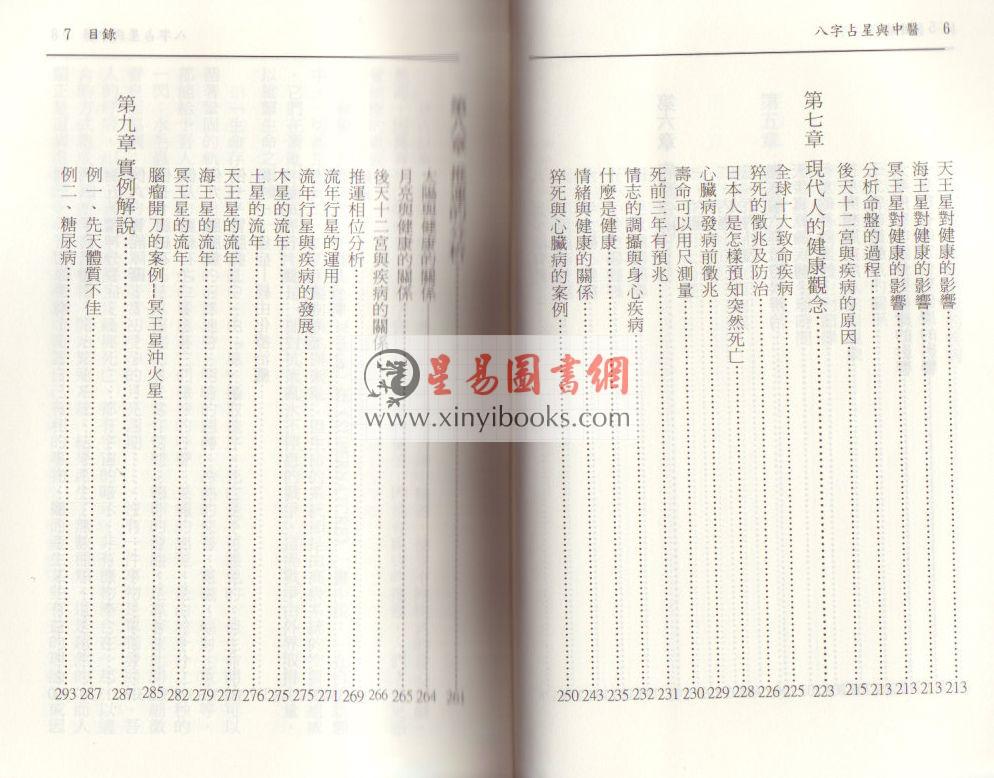 八字占星與中醫 6
天王星對健康的影響 213
海王星對健康的影響 213
冥王星對健康的影響 213
分析命盤的過程 213
後天十二宮與疾病的原因 215
第七章 現代人的健康觀念 223
全球十大致命疾病 225
猝死的徵兆及防治 226
日本人是怎樣預知突然死亡 228
心臟病發病前徵兆 229
壽命可以用尺測量 230
死前三年有預兆 231
情志的調攝與身心疾病 232
什麼是健康 235
情緒與健康的關係 243
猝死與心臟病的案例 250
7 目錄
第八章 推運的分析 261
太陽與健康的關係 264
月亮與健康的關係 265
後天十二宮與疾病的關係 266
推運相位分析 269
流年行星的運用 271
流年行星與疾病的發展 275
木星的流年 275
土星的流年 276
天王星的流年 277
海王星的流年 279
冥王星的流年 282
腦瘤開刀的案例－冥王星沖火星 285
第九章 實例解說 287
例一、先天體質不佳 287
例二、糖尿病 293
星易圖書網
www.xinyibooks.com